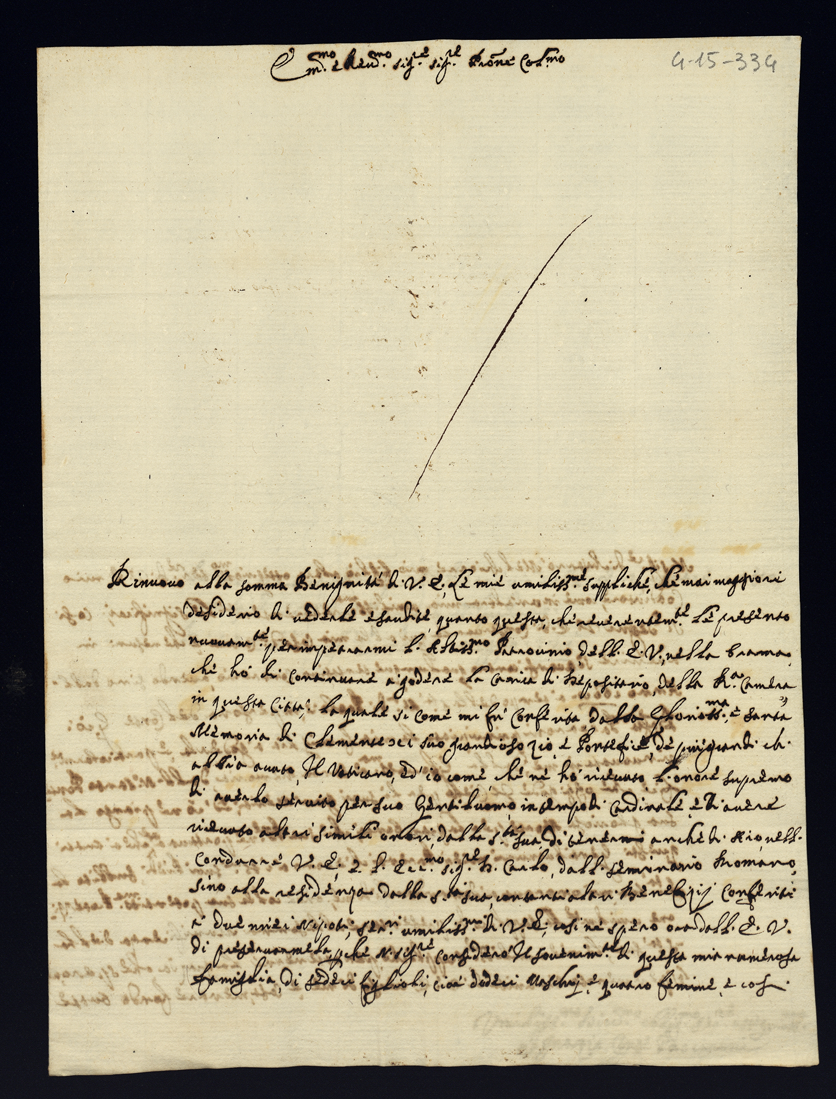 Em.mo e Reud.mo sig.re sig.re Prone Col.mo
4-15-334
Rinuovo alla somma Benignità di V. E, le mie umiliss.me suppliche, che mai maggiori
desiderio di vederle esaudite quanto questa, che reverentem.te le presento
nuouam.te per impetrarmi l'Altiss.mo Patrocinio dell'E. V. nella brama,
che ho di continuare a godere la Carica di Depositario della R.a Camera
in questa Città; la quale si come mi fù Conferita dalla Glorioss.ma e Santa
Memoria di Clemente XI suo grandioso zio, e Pontefice, de più grandi ch.
abbia auuto, Il Vaticano, ed' io come, che ne ho riceuuto l'onore supremo
di auerlo seruito per suo Gentiluomo, in tempo di Cardinale, e di auere
riceuuto altri simili onori dalla S.tà sua, di tenermi anche di
Condurre V. E. e l'Ecc.mo sig.re D. Carlo, dall Seminario Romano,
sino alla residenza della S.tà sua, con tanti altri Benefizij Conferiti
a' due miei Nipoti, ser.ri umiliss.mi di V. E, così ne spero ora dall'E. V.
di preseruarmela, che N. sig.re consideri Il souenim.to di questa mia numerosa
famiglia, di sedeci figlioli, cioè dodeci Maschi, e quatro femine, e cosi